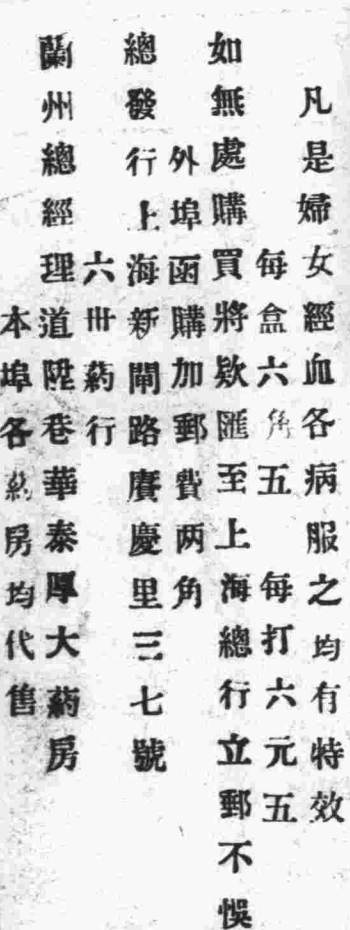 凡是婦女經血各病服之均有特效
每盒六角五　每打六元五
如無處購買將欵匯至上海總行立郵不悞
外埠函購加郵費两角
總發行上海新閘路賡慶里三七號
六卌葯行
蘭州總經理道陞巷華泰厚大葯房
本埠各葯房均代售